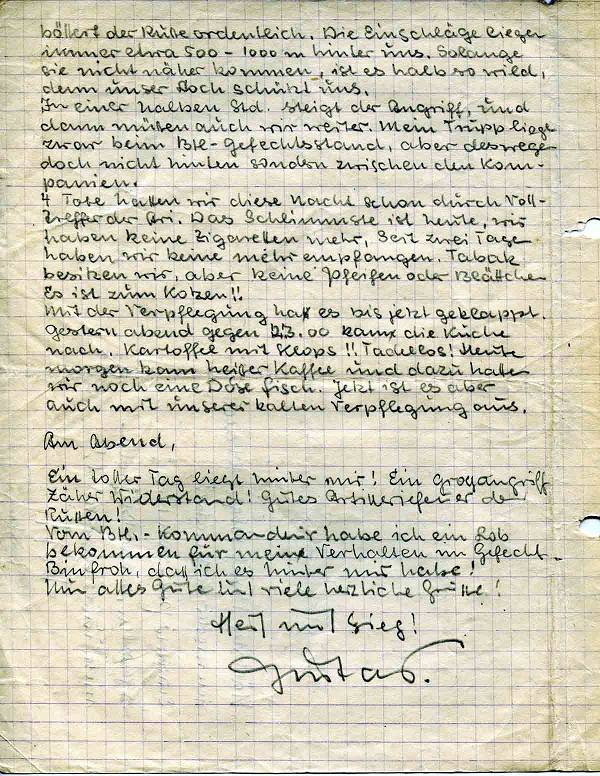 böllert der Russe ordentlich. Die Einschläge liegen
immer etwa 500 - 1000 m hinter uns. Solange
sie nicht näher kommen, ist es halb so wild,
denn unser Loch schützt uns.
In einer halben Std. steigt der Angriff, und
dann müssen auch wir weiter. Mein Trupp liegt
zwar beim Btl.-Gefechtsstand, aber deswegen
doch nicht hinten sondern zwischen den Kom-
panien.
4 Tote hatten wir diese Nacht schon durch Voll-
treffer der Ari. Das Schlimmste ist heute, wir
haben keine Zigaretten mehr, Seit zwei Tage
haben wir keine mehr empfangen. Tabak
besitzen wir, aber keine Pfeifen oder Blättchen
Es ist zum Kotzen!!
Mit der Verpflegung hat es bis jetzt geklappt.
Gestern abend gegen 23.00 kam die Küche
nach. Kartoffel mit Klops!! Tadellos! Heute
morgen kam heißer Kaffee und dazu hatten
wir noch eine Dose Fisch. Jetzt ist es aber
auch mit unserer kalten Verpflegung aus.
Am Abend,
Ein toller Tag liegt hinter mir! Ein Großangriff
Zäher Widerstand! Gutes Artilleriefeuer der
Russen!
Vom Btl.-Kommandeur habe ich ein Lob
bekommen für meine Verhalten im Gefecht.
Bin froh, daß ich es hinter mir habe!
Nun alles Gute und viele herzliche Grüße!
Heil und Sieg!
Gustav.